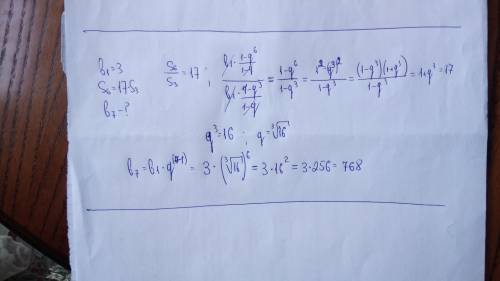 b₁=3
S₆=17S₃
b₇-?
S₆/S₃ = 17 ; (b₁·(1-q⁶)/(1-q))/(b₁·(1-q³)/(1-q)) = (1-q⁶)/(1-q³) = (1²-(q³)²)/(1-q³) = ((1-q³)(1+q³))/(1-q³) = 1+q³=17
q³=16 ; q=∛16
b₇=b₁·q⁽⁷⁻¹⁾= 3·(∛16)⁶=3·16²=3·256=768